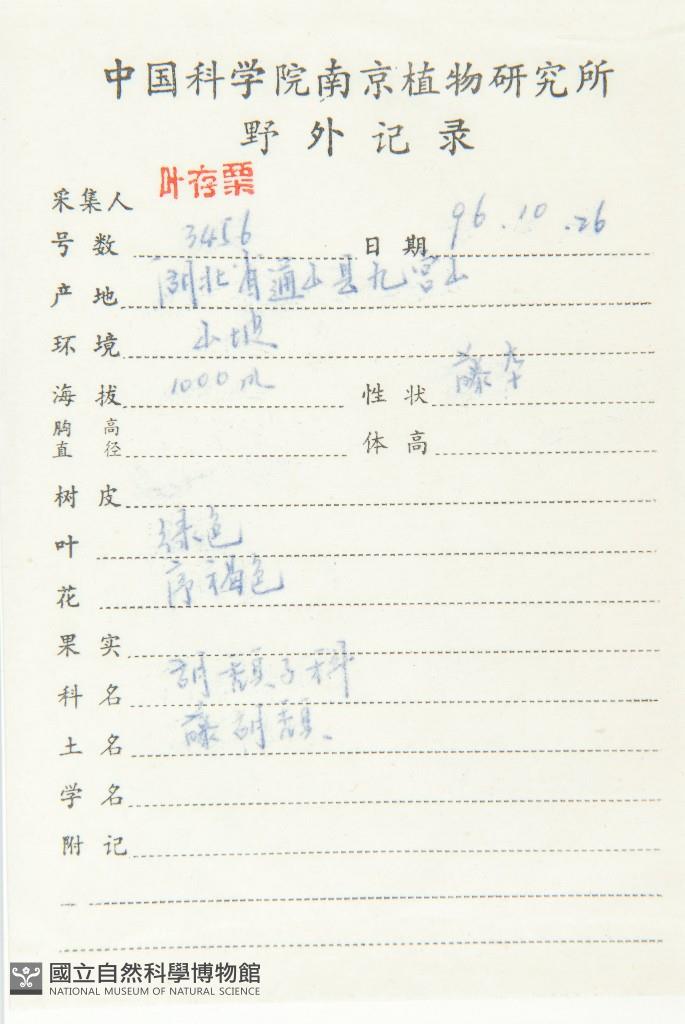 中国科学院南京植物研究所
野外记录
采集人 叶存栗
号数 3456 日期 96.10.26
产地 湖北省通山县九宫山
环境 山坡
海拔 1000m 性状 藤本
胸高直径 体高
树皮
叶 绿色
花 序褐色
果实
科名 胡颓子科
土名 藤胡颓
学名
附记
國立自然科學博物館
NATIONAL MUSEUM OF NATURAL SCIENCE